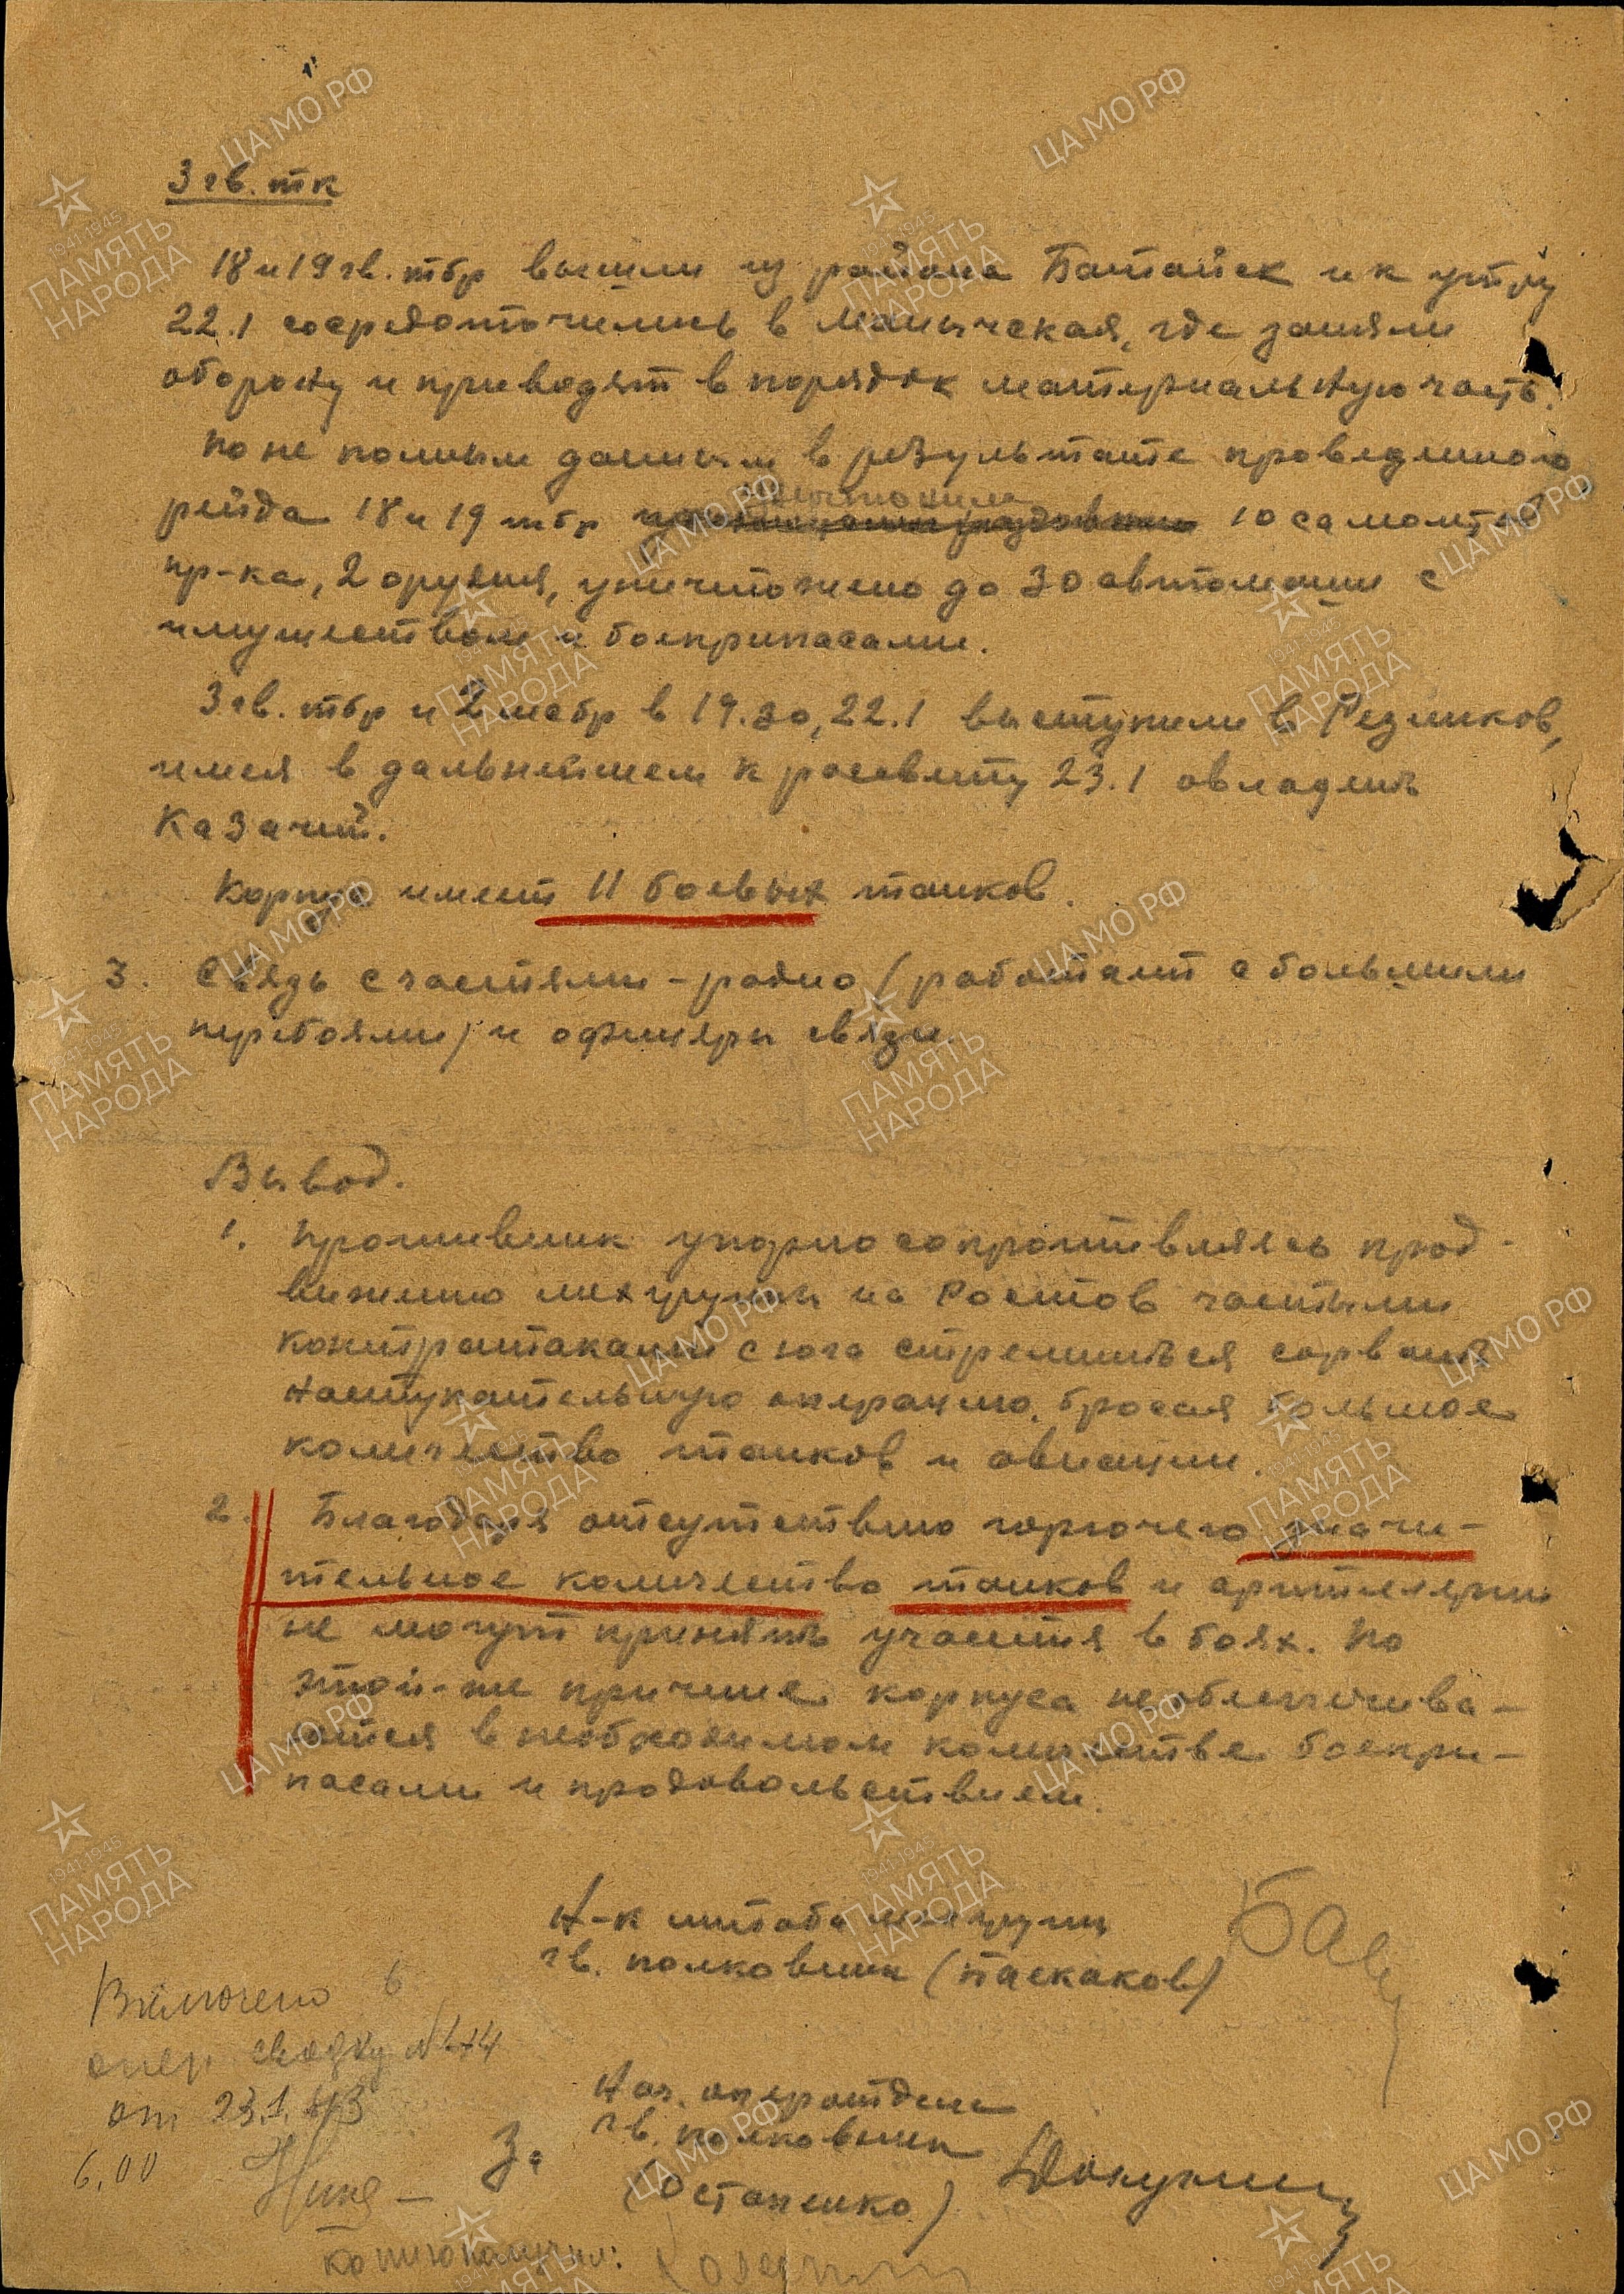 3 гв. тк
18 и 19 гв. тбр вышли из района Батайск и к утру
22.1 сосредоточились в Манычская, где заняли
оборону и приводят в порядок материальную часть.
По не полным данным в результате проведенного
рейда 18 и 19 тбр уничтожили 10 самолетов
пр-ка, 2 орудия, уничтожено до 30 автомашин с
имуществом и боеприпасами.
3 гв. тбр и 2 мсбр в 19.30, 22.1 выступили в Резников,
имея в дальнейшем к рассвету 23.1 овладеть
Казачий.
Корпус имеет 11 боевых танков.
3. Связь с частями - радио (работает с большими
перебоями) и офицеры связи.
Вывод.
1. Противник упорно сопротивляясь прод-
вижению мехгруппы на Ростов частыми
контратаками с юга стремиться сорвать
наступательную операцию, бросая большое
количество танков и авиации.
2. Благодаря отсутствию горючего значи-
тельное количество танков и артиллерии
не могут принять участия в боях. По
этой-же причине корпуса необеспечива-
ются в необходимом количестве боепри-
пасами и продовольствием.
Н-к штаба мехгруппы
гв. полковник (Паскаков)
Включено в
опер. сводку №
от 23.1.43
6.00
Нач. оперотдела
гв. полковник
За
(Остапенко)
Копию получил:
ЦА МО РФ
1941-1945
ПАМЯТЬ
НАРОДА